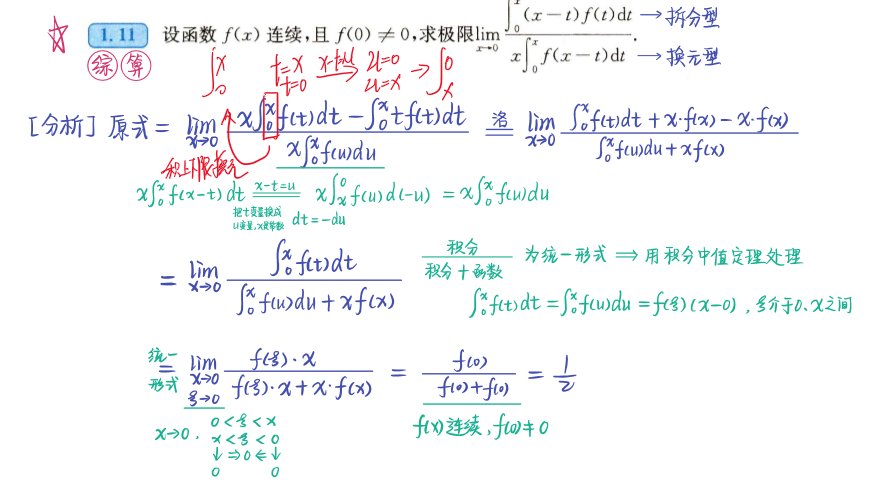 1.11 设函数 f(x) 连续,且 f(0) ≠ 0,求极限 lim_{x→0} \frac{∫_0^x (x-t)f(t)dt}{x∫_0^x f(x-t)dt}. → 拆分型 → 换元型
综 算 ∫_0^x t=x t=0 x-t=u u=0 u=x → ∫_x^0
[分析] 原式 = lim_{x→0} \frac{x∫_0^x f(t)dt - ∫_0^x tf(t)dt}{x∫_0^x f(u)du} 洛 = lim_{x→0} \frac{∫_0^x f(t)dt + x·f(x) - x·f(x)}{∫_0^x f(u)du + xf(x)}
x∫_0^x f(x-t)dt x-t=u = x∫_x^0 f(u)d(-u) = x∫_0^x f(u)du
把t变量换成
u变量,x是常数 dt=-du
= lim_{x→0} \frac{∫_0^x f(t)dt}{∫_0^x f(u)du + xf(x)} \frac{积分}{积分+函数} 为统一形式 ⇒ 用积分中值定理处理
∫_0^x f(t)dt = ∫_0^x f(u)du = f(ξ)(x-0), ξ介于0、x之间
统一形式 = lim_{x→0 ξ→0} \frac{f(ξ)·x}{f(ξ)·x + x·f(x)} = \frac{f(0)}{f(0)+f(0)} = \frac{1}{2}
x→0, 0<ξ<x f(x)连续,f(0)≠0
x<ξ<0
↓ ⇒0⇐ ↓
0 0